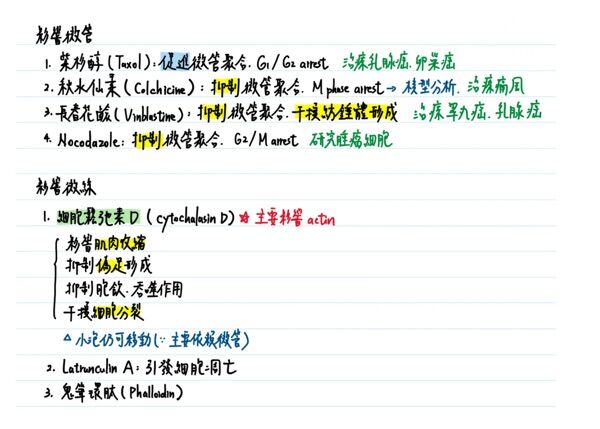 影響微管
1. 紫杉醇(Taxol): 促進微管聚合. G1/G2 arrest 治療乳腺癌.卵巢癌
2. 秋水仙素(Colchicine): 抑制微管聚合. M phase arrest → 核型分析. 治療痛風
3. 長春花鹼(Vinblastine): 抑制微管聚合.干擾紡錘體形成 治療睪丸癌.乳腺癌
4. Nocodazole: 抑制微管聚合. G2/M arrest 研究腫瘤細胞
影響微絲
1. 細胞鬆弛素D (cytochalasin D) ☆ 主要影響 actin
影響肌肉收縮
抑制偽足形成
抑制胞飲.吞噬作用
干擾細胞分裂
△ 小泡仍可移動(∵ 主要依賴微管)
2. Latrunculin A: 引發細胞凋亡
3. 鬼筆環肽(Phalloidin)